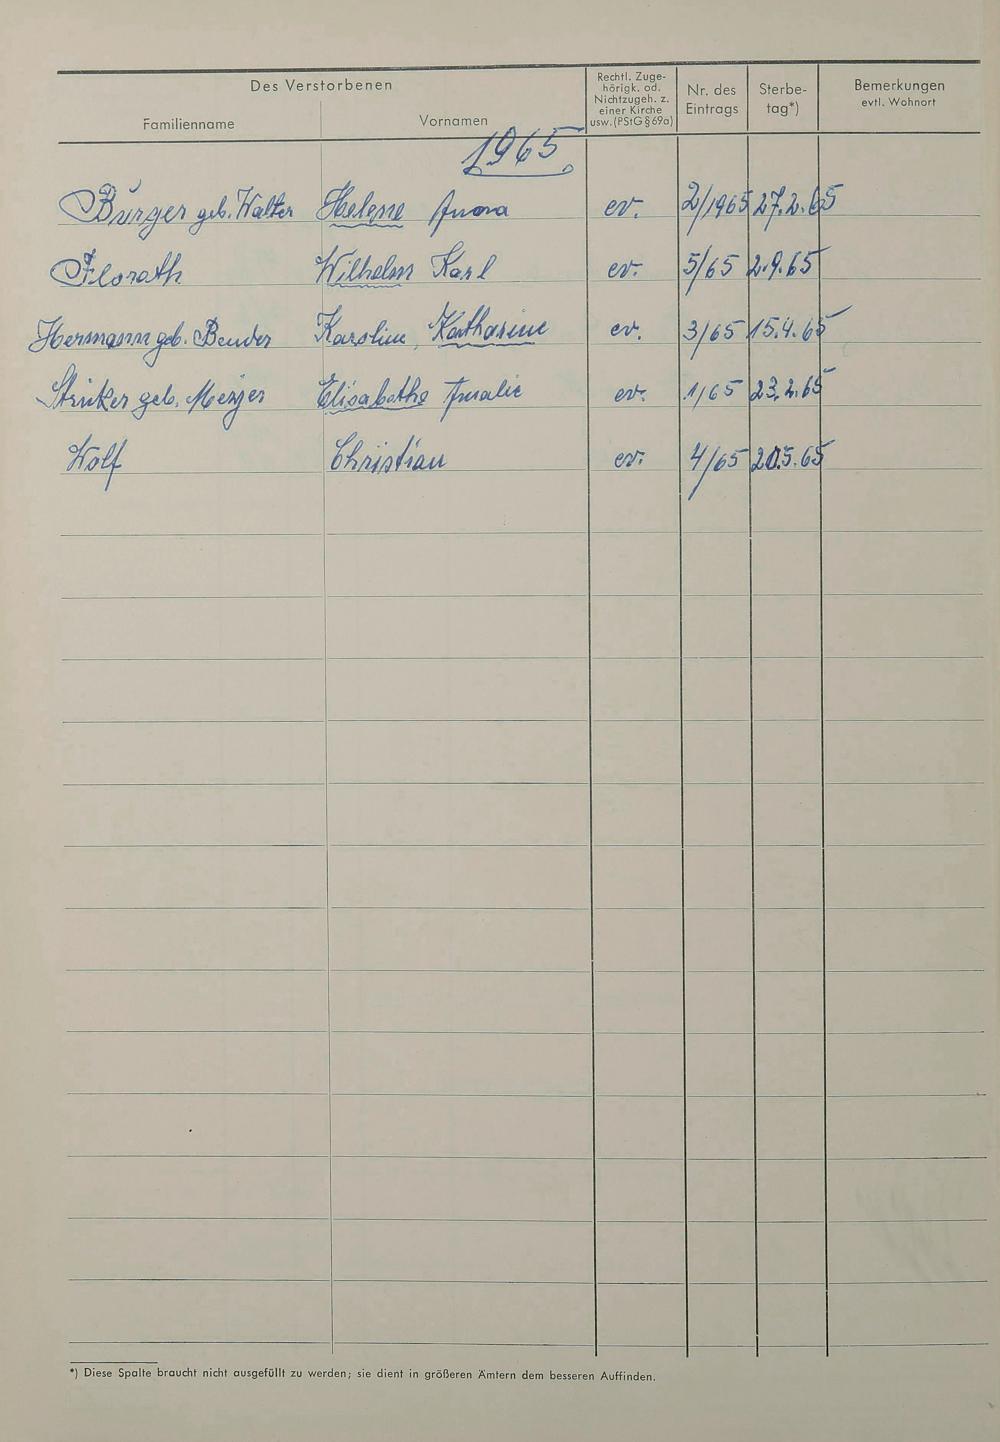 Des Verstorbenen
Familienname
Vornamen
Rechtl. Zuge-
hörigk. od.
Nichtzugeh. z.
einer Kirche
usw. (PStG § 69a)
Nr. des
Eintrags
Sterbe-
tag*)
Bemerkungen
evtl. Wohnort
1965
Burger geb. Walter Helene Anna ev. 2/1965 27.2.65
Florath Wilhelm Karl ev. 5/65 2.9.65
Hermann geb. Bender Karoline, Katharine ev. 3/65 15.4.65
geb. Elisabethe Amalie ev. 1/65 23.2.65
Wolf Christian ev. 4/65 20.5.65
*) Diese Spalte braucht nicht ausgefüllt zu werden; sie dient in größeren Ämtern dem besseren Auffinden.